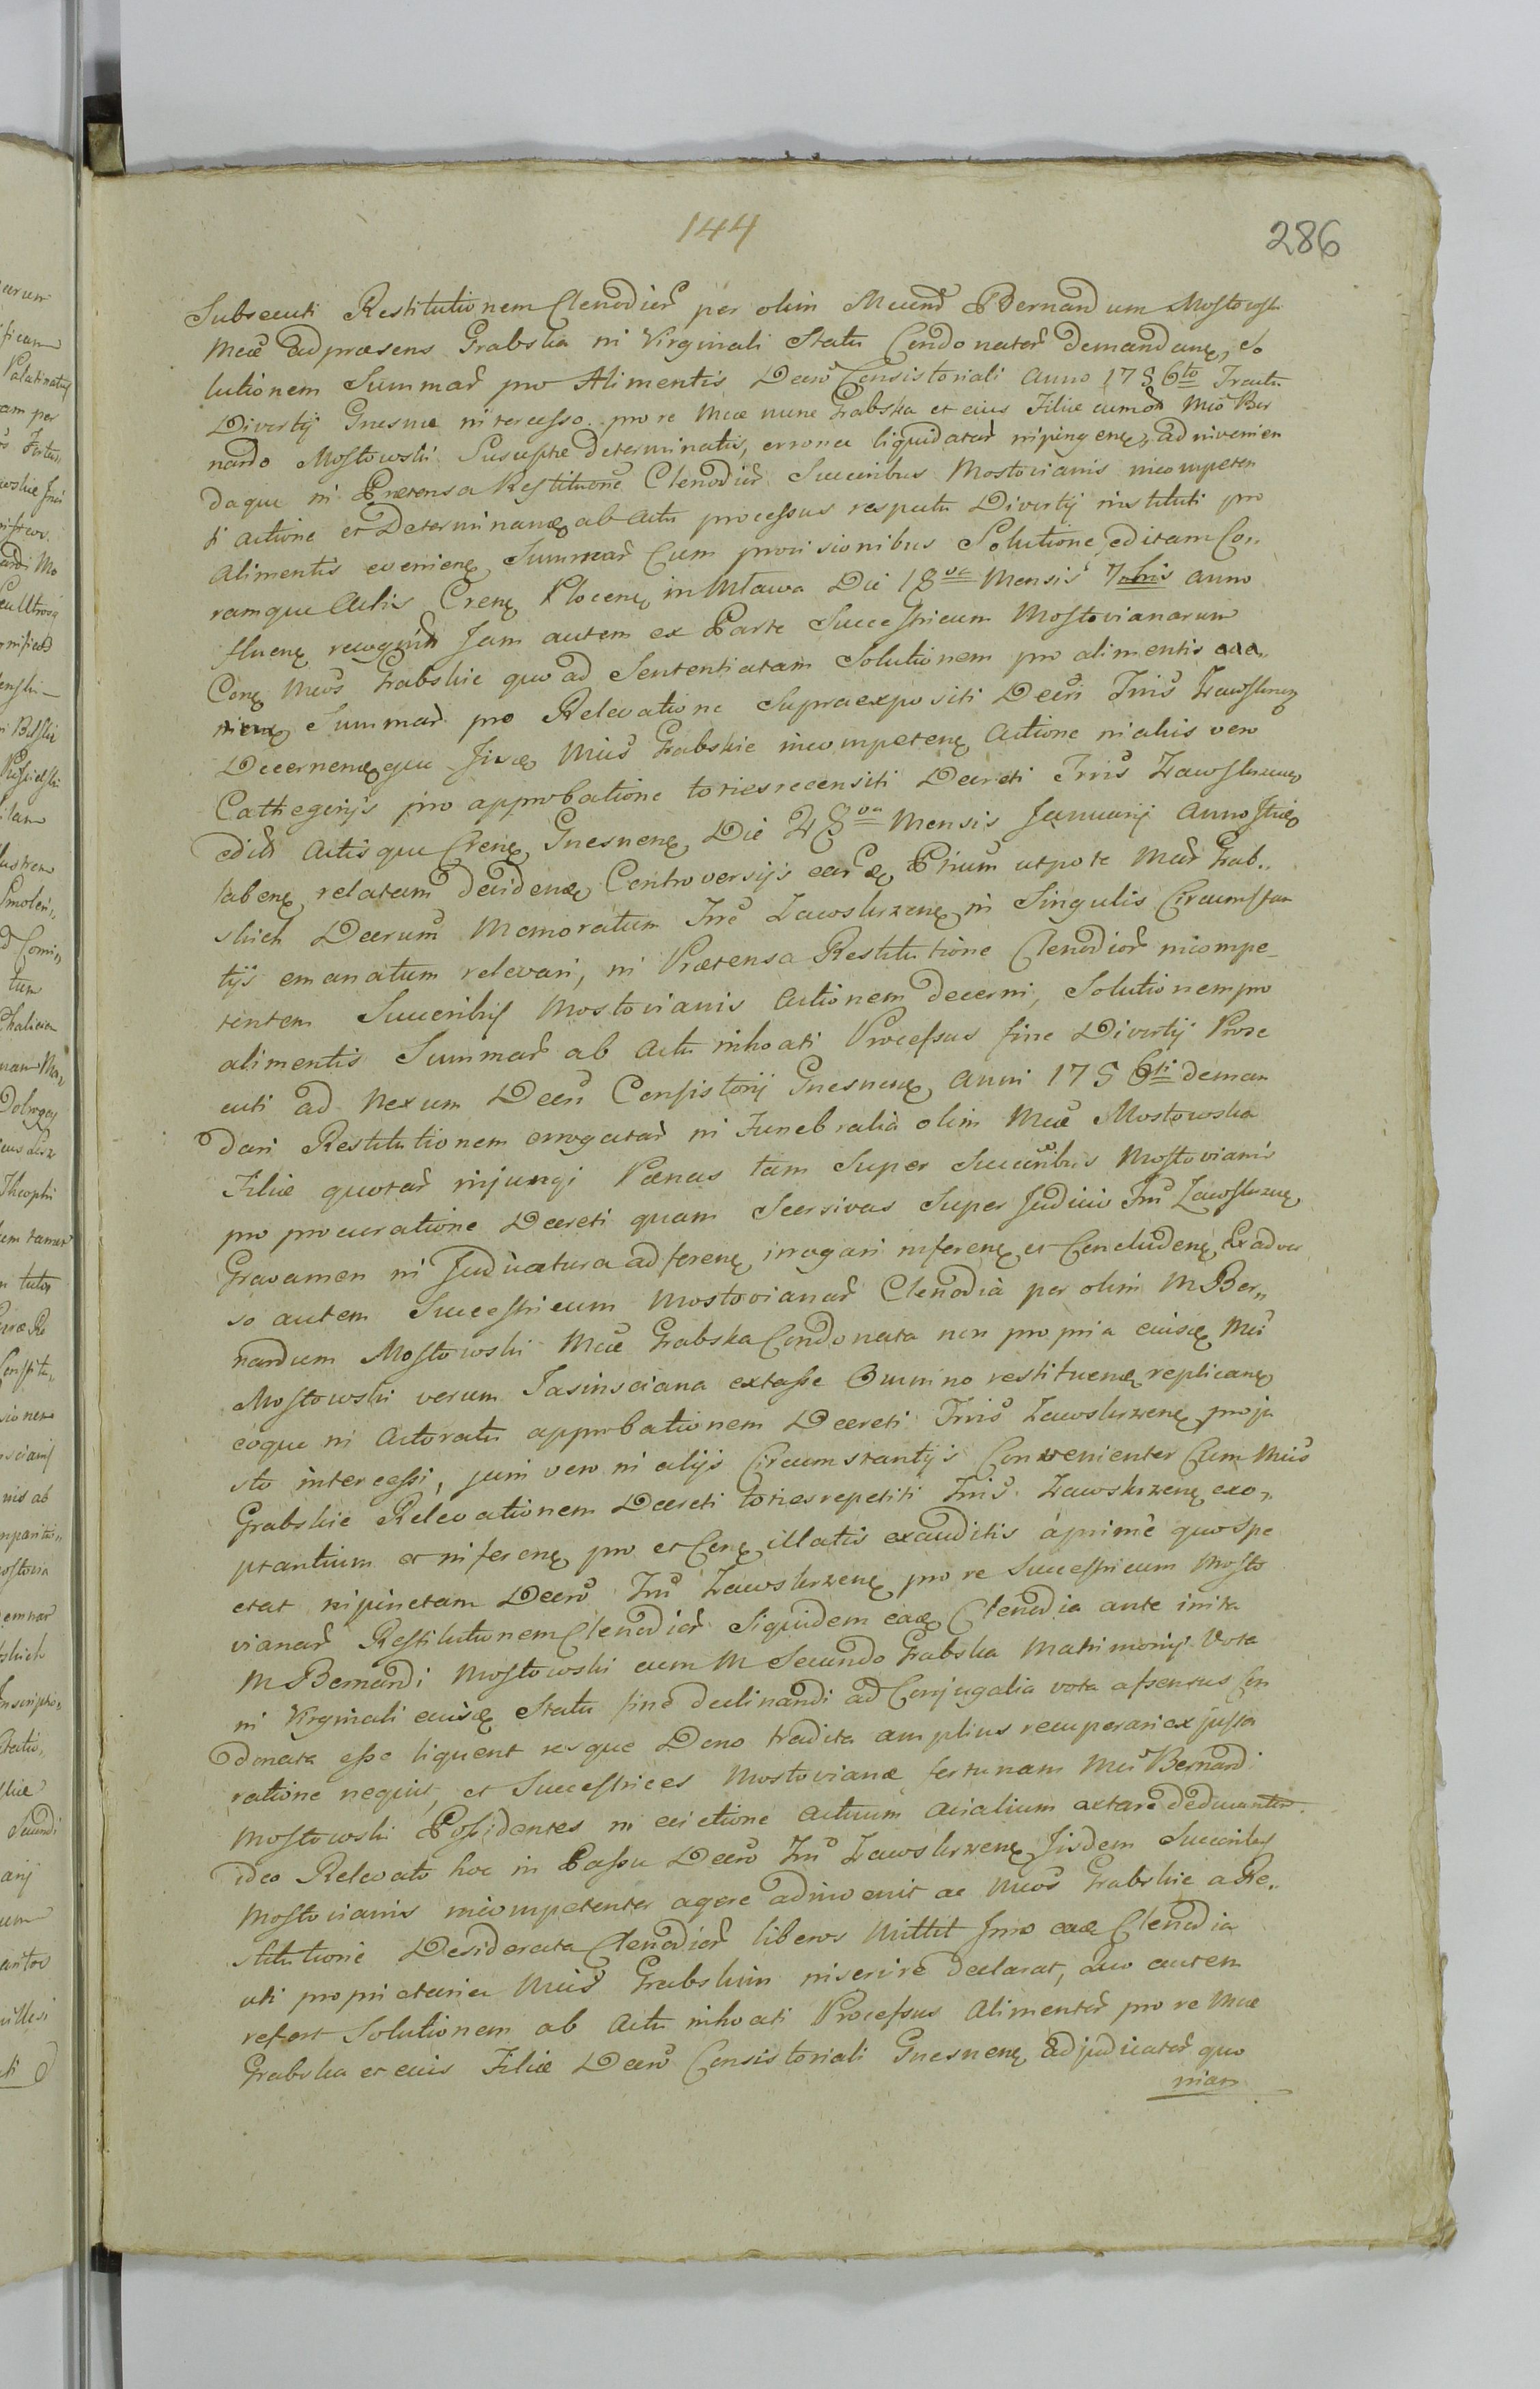 144
286
Subsecuti Restitutionem Clenodior per olim Mcum Bernardum Mostowski
Mcæ ad præsens Grabska in Virginali Statu Condonatar demandanę, So
lutionem Summar pro Alimentis Decro Consistoriali Anno 1756to Tractu
Divortij Gnesnæ intercesso pro re Mcæ nunc Grabska et eius Filiæ cum Mco Ber
nardo Mostowski Susceptæ determinatis, erronee liquidatar inpingenę, ad invenien
daque in Prætensa Restitutione Clenodior Succribus Mostovianis incompeten
ti actione et Determinanę ab Actu processus respectu Divortij instituti pro
Alimentis evenienę Summar Cum provisionibus Solutione, editam Co„
ramque Actis Crenę Plocenę in Mława Die 18va Mensis 7bris Anno
fluenę recognit Jam autem ex Parte Successricum Mostovianarum
Conę Mcos Grabskie quo ad Sententiatam Solutionem pro alimentis
nienę Summar pro Relevatione Supraexpositi Decri Jnis Zawskrzenę
Decernenęque Mcis Grabskie incompetenę Actione in aliis vero
Cathegorijs pro approbatione toties recensiti Decreti Jnis Zawskrzenę
edit Actisque Crenę Gnesnenę Die 28va Mensis Januarij Anno
labenę relatam decidenę Controversijs earę Ptium utpote Mcar Grab„
skich Decrum Memoratum Jnre Zawskrzenę in Singulis Circumstan
tijs emanatum relevari, in Prætensa Restitutione Clenodior incompe_
tentem Succribus Mostovianis Actionem decerni, Solutionem pro
alimentis Summar ab Actu inhoati Processus fine Divortij Prose
cuti ad nexum Decri Consistorij Gnesnenę Anni 1756ti deman
dari Restitutionem erogatar in Funebralia olim Mcæ Mostowska
Filiæ quotar injungi Pænas tam Super Succribus Mostovianis
pro procuratione Decreti quam Seersivas Super Judicio Jnri Zawskrzenę
Gravamen in Judicatura adferenę irrogari inferenę et Concludenę Ex adver
so autem Successricum Mostovianar Clenodia per olim M Ber„
nardum Mostowski Mcæ Grabska Condonata non propria eiusę Mci
Mostowski verum Jasinsciana extasse Omnino restituenę replicanę
eoque in Actoratu approbationem Decreti Jnis Zawskrzenę pro ju
sto intercessi, jam vero in alijs Circumstantijs Convenienter Cum Mcis
Grabskie Relevationem Decreti toties repetiti Jnis Zawskrzenę exo„
ptantium et inferenę pro et Conę illatis exauditis aprime quo Spe
ctat injunctam Decro Jnri Zawskrzenę pro re Successricum Mosto
vianar Restitutionem Clenodior Siquidem eaę Clenodia ante inita
M Bernardi Mostowski cum M Secundo Grabska Matrimonij Vota
in Virginali eiusę Statu fine declinandi ad Conjugalia vota assensus Con
donata esse liquent resque Dono tradita amplius recuperari ex justa
ratione nequit, et Successrices Mostovianæ fortunam Mci Bernardi
Mostowski Possidentes in evictione Actuum extare deducuntur
ideo Relevato hoc in Passu Decro Jnri Zawskrzenę Jisdem Succribus
Mostovianis incompetenter agere adinvenit ac Mcos Grabskie a Re„
stitutione Desiderata Clenodior liberos Mittit Jmo eaę Clenodia
uti proprietaria Mcis Grabskim inservire declarat, Quo autem
refert Solutionem ab Actu inhoati Processus Alimentor pro re Mcæ
Grabska et eius Filiæ Decro Consistoriali Gnesnenę adjudicatar quo
niam